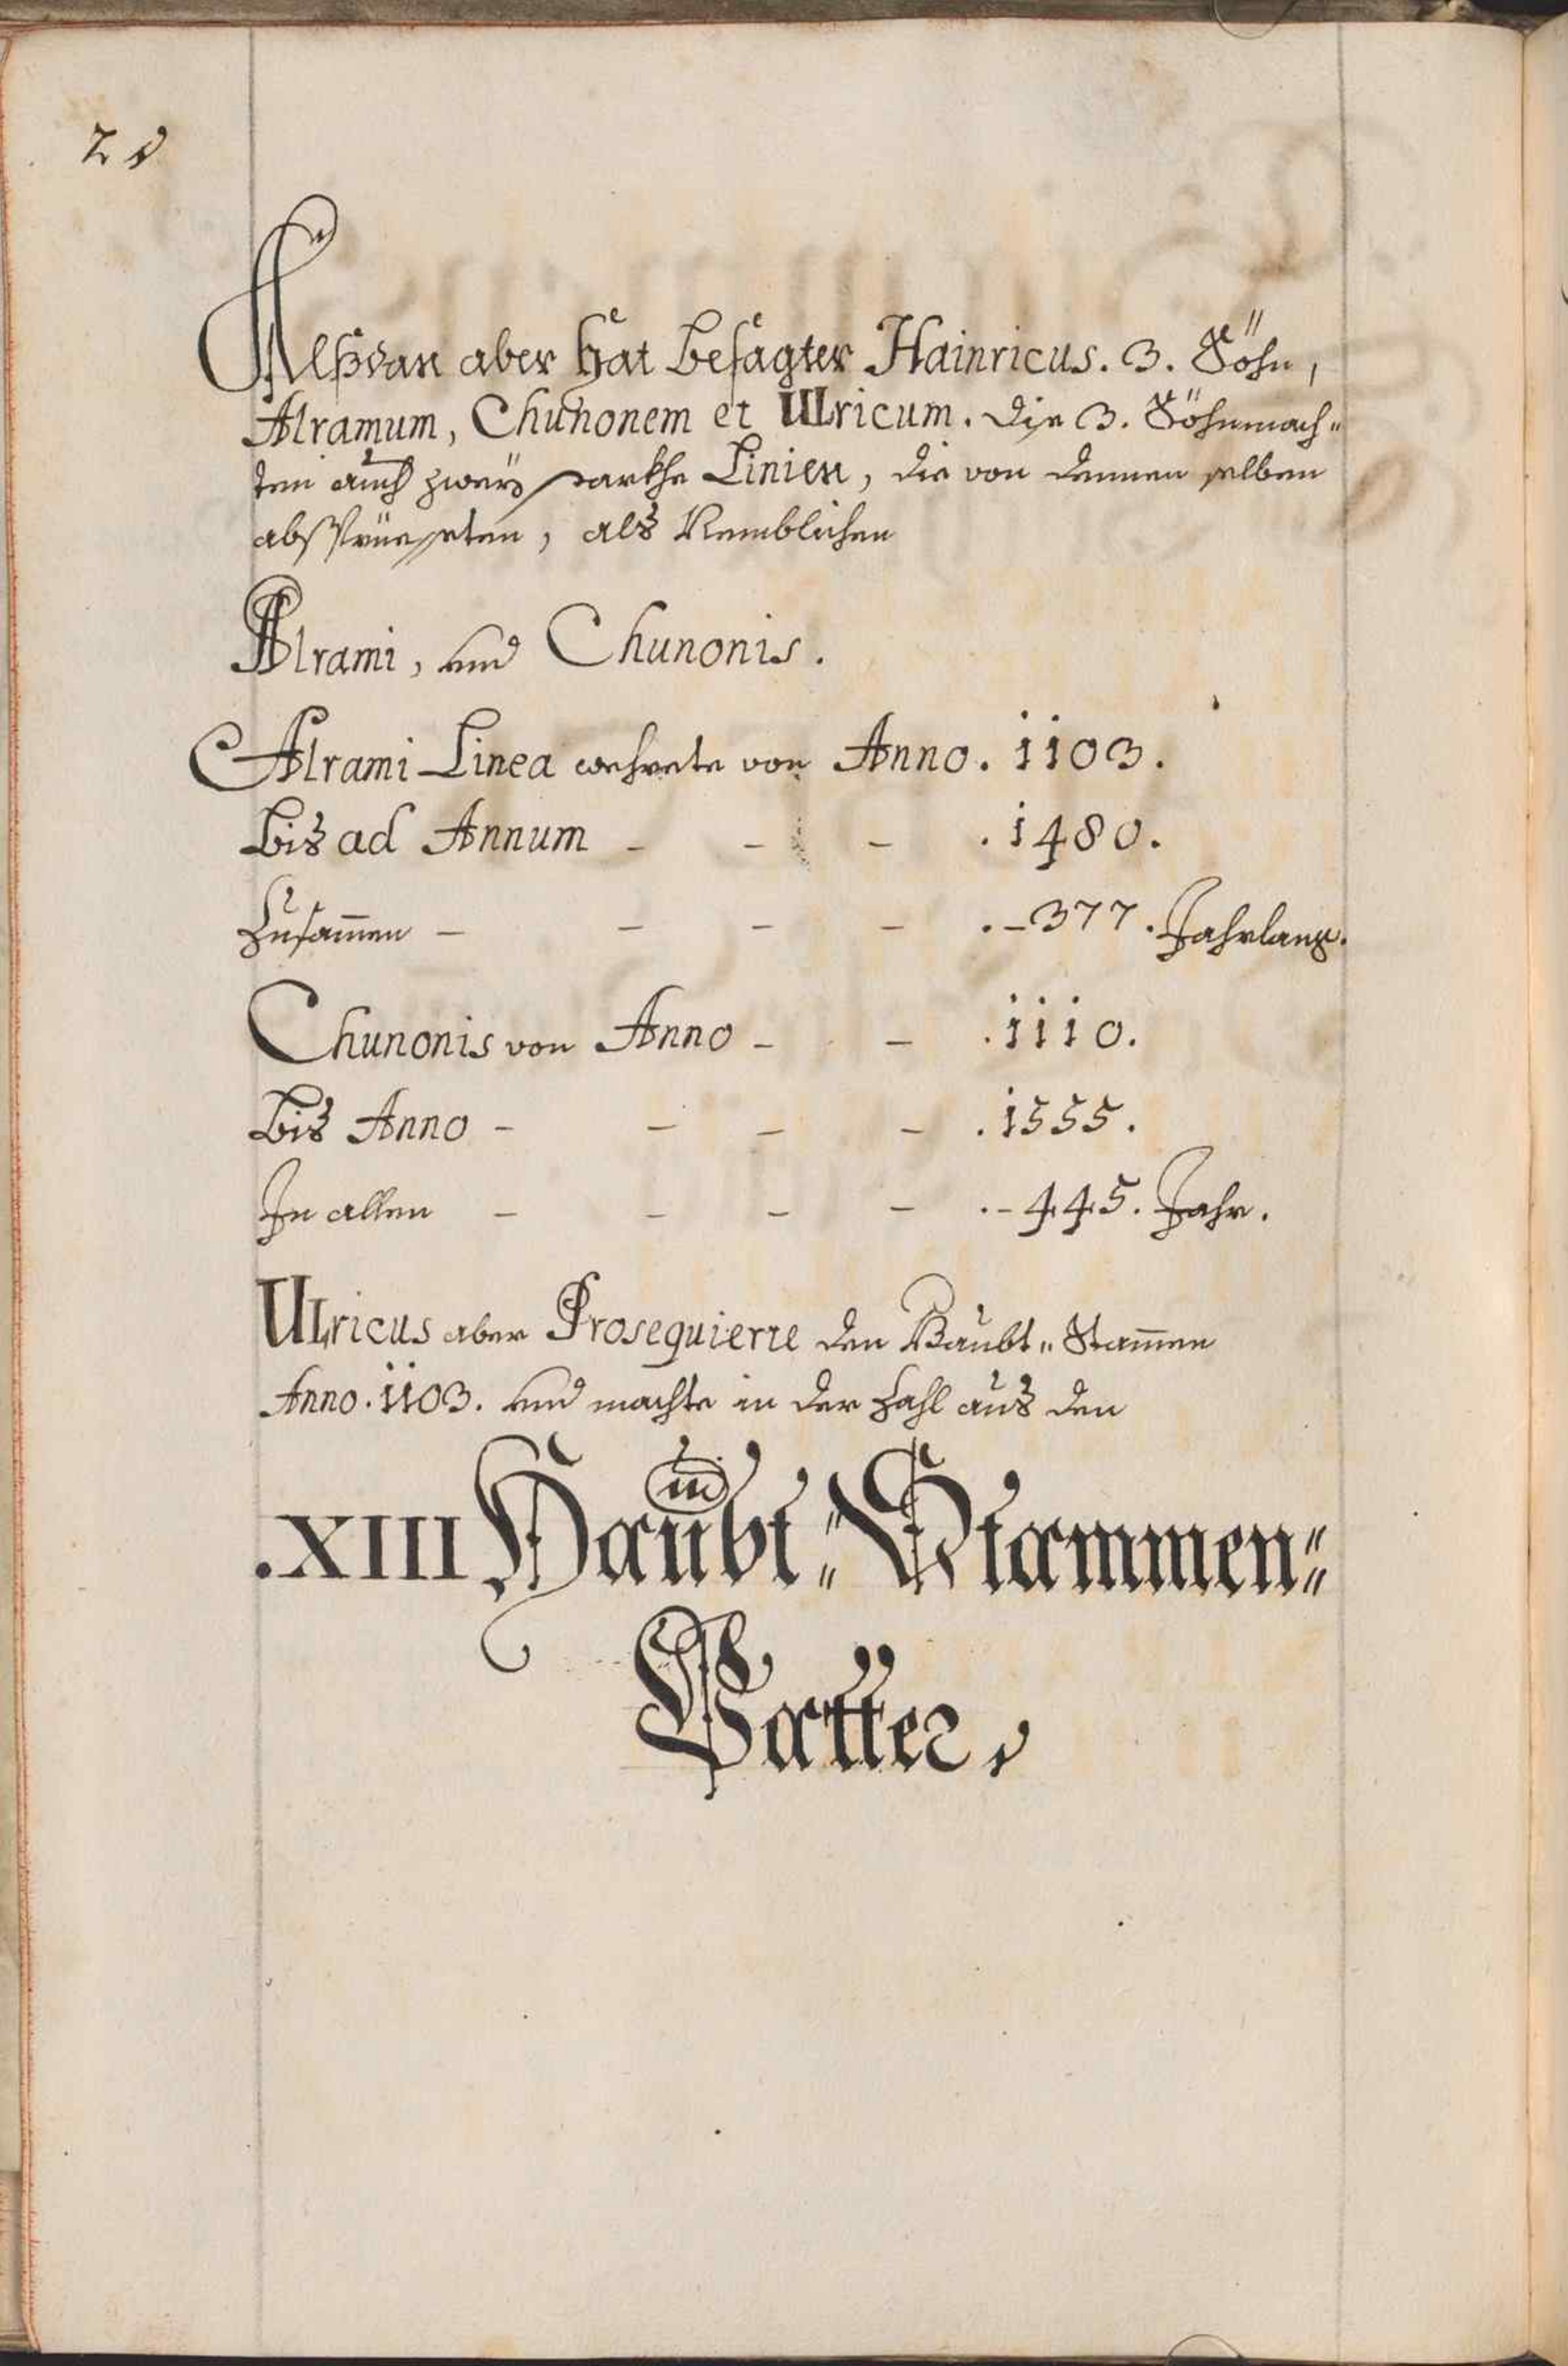 Alßdan aber hat besagter Hainricus. 3. Söhn,
Alramum, Chunonem et Ulricum. Die 3. Söhn mach„
ten auch zwey starkhe Linien, die von dennen selben
absprüesseten, als Nemblichen
Alrami, und Chunonis.
Alrami Linea wehrete von Anno. 1103.
bis ad Annum - - - . 1480.
Zusam̄en - - - - . - 377. Jahrlang.
Chunonis von Anno - - . 1110.
bis Anno - - - - . 1555.
In allen - - - - . - 445. Jahr.
Ulricus aber Prosequierte den Haubt„ Stam̄en
Anno. 1103. und machte in der Zahl aus den
.XIII Haubt„ Stammen„
Vatter,